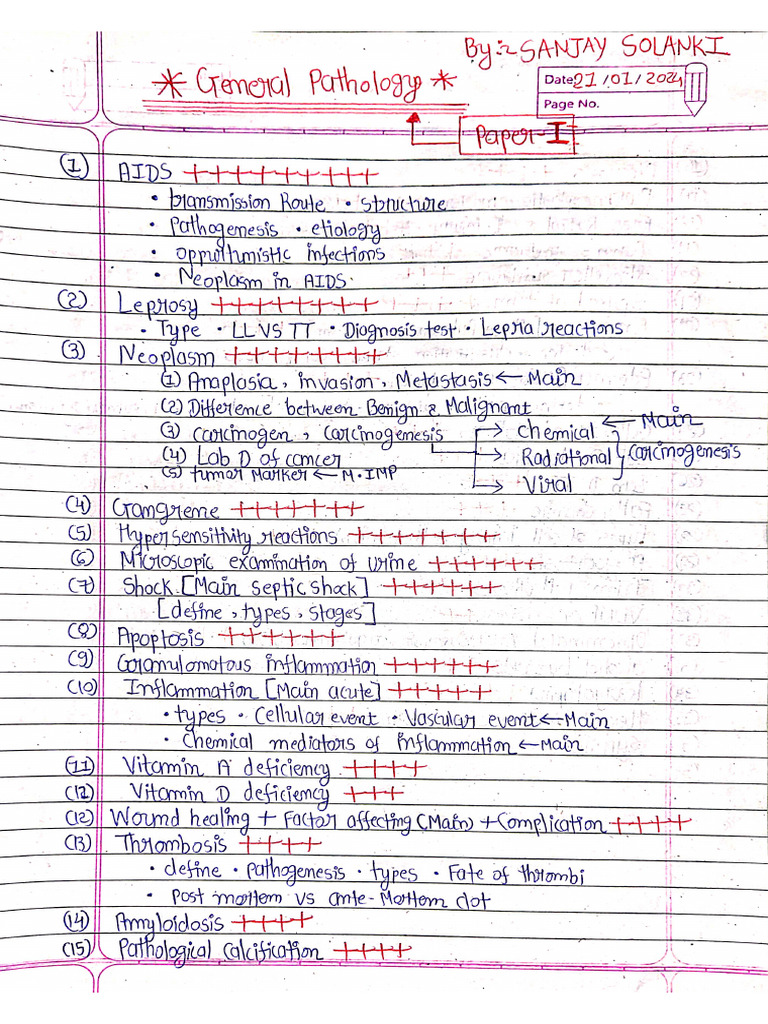 By:- SANJAY SOLANKI
* General Pathology *
Date 21/01/2024
Page No.
Paper-I
(1) AIDS +++++++++
• transmission Route • structure
• Pathogenesis • etiology
• oppurthmistic infections
• Neoplasm in AIDS.
(2) Leprosy ++++++++
• Type • LL VS TT • Diagnosis test • Lepra reactions
(3) Neoplasm ++++++++
(1) Anaplasia, invasion, Metastasis ← Main
(2) Difference between Benign & Malignant
(3) carcinogen, carcinogenesis → chemical ← Main
(4) Lab D of cancer → Radiational } Carcinogenesis
(5) tumor Marker ← M.IMP → Viral
(4) Gangrene +++++++
(5) Hypersensitivity reactions +++++++
(6) Microscopic examination of urine ++++++
(7) Shock [Main septic shock] ++++++
[define, types, stages]
(8) Apoptosis ++++++
(9) Granulomatous inflammation ++++++
(10) Inflammation [Main acute] +++++
• types • Cellular event • Vascular event ← Main
• Chemical mediators of inflammation ← Main
(11) Vitamin A deficiency ++++
(12) Vitamin D deficiency +++
(12) Wound healing + Factor affecting (Main) + Complication ++++
(13) Thrombosis ++++
• define • Pathogenesis • types • Fate of thrombi
• Post mortem vs ante-Mortem clot
(14) Amyloidosis ++++
(15) Pathological Calcification ++++